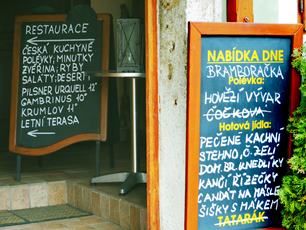 RESTAURACE
ČESKÁ KUCHYNĚ
POLÉVKY, MINUTKY
ZVĚŘINA, RYBY
SALÁTY, DESERT,
PILSNER URQUELL 12°
GAMBRINUS 10°
KRUMLOV 11°
LETNÍ TERASA
NABÍDKA DNE
BRAMBORAČKA
Polévka:
HOVĚZÍ VÝVAR
ČOČKOVÁ
Hotová jídla:
PEČENÉ KACHNÍ
STEHNO, Č. ZELÍ
DOM. BR. KNEDLÍKY
KANČÍ ŘÍZEČKY
CANDÁT NA MÁSLE
ŠIŠKY S MÁKEM
TATARÁK